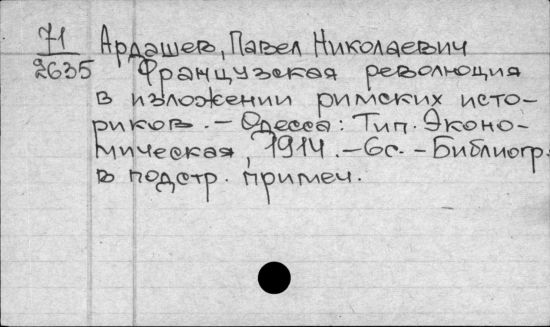 71 Ардашев, Павел Николаевич
2635 Французская революция
в изложении римских исто-
риков. - Одесса: Тип. Эконо-
мическая, 1914. - 6с. - Библиогр.
в подстр. примеч.